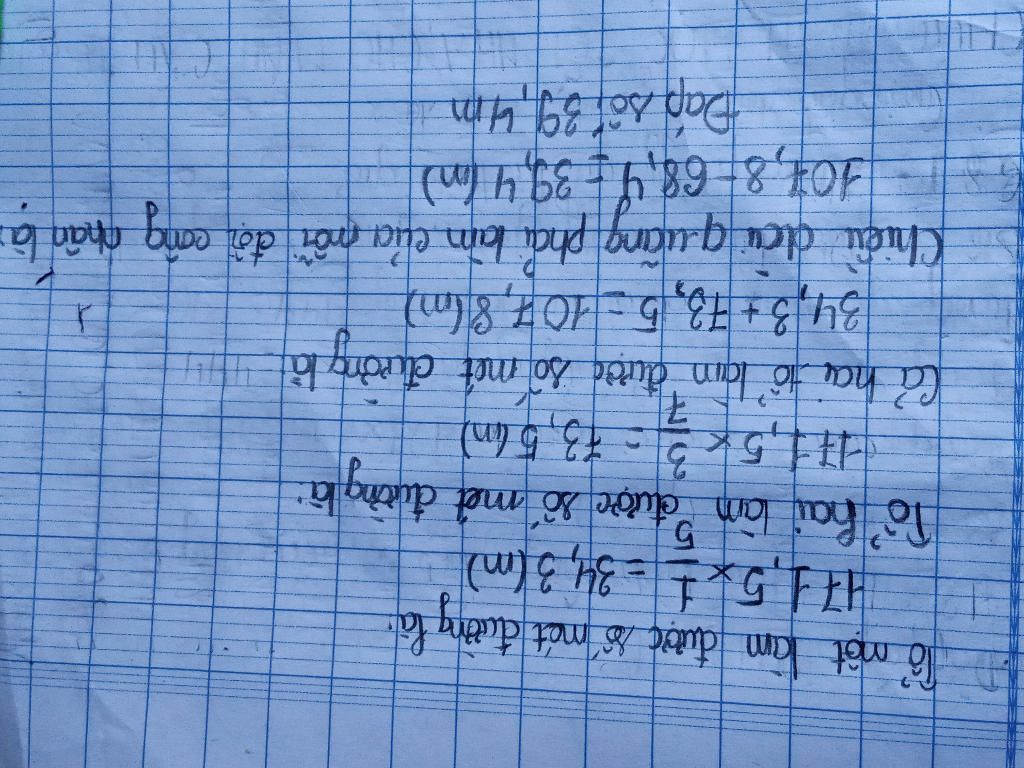 Tổ một làm được số mét đường là:
171,5 × 1/5 = 34,3 (m)
Tổ hai làm được số mét đường là:
171,5 × 3/7 = 73,5 (m)
Cả hai tổ làm được số mét đường là
34,3 + 73,5 = 107,8 (m)
Chiều dài quãng phải làm của mỗi đội công nhân là:
107,8 - 68,4 = 39,4 (m)
Đáp số 39,4m